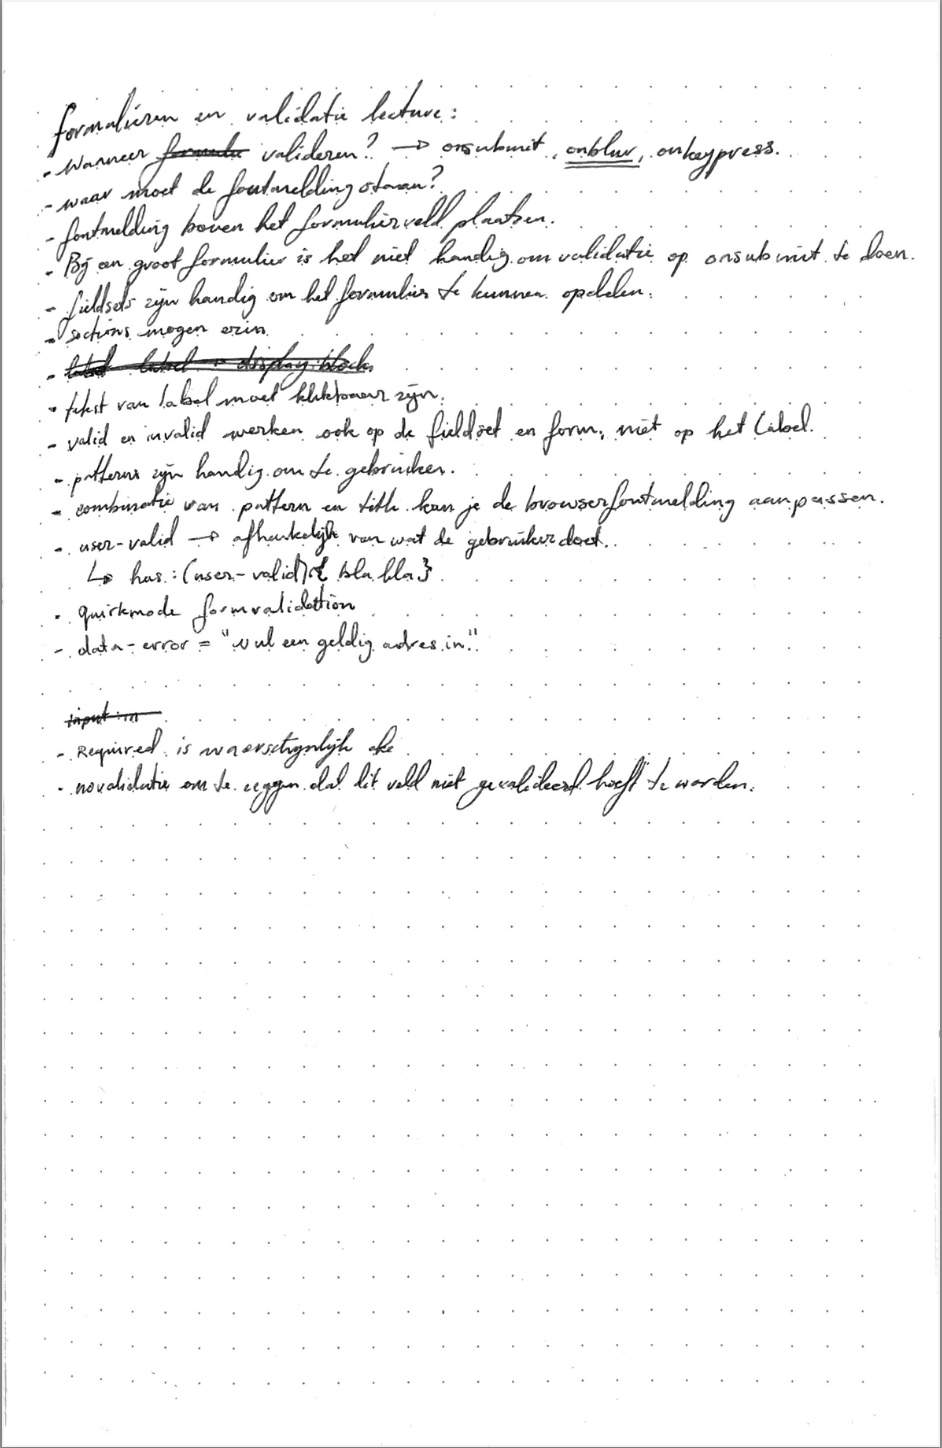 formulieren en validatie lecture:
- wanneer formulie valideren? → onsubmit, onblur, onkeypress.
- waar moet de foutmelding staan?
- foutmelding boven het formulierveld plaatsen.
- Bij een groot formulier is het niet handig om validatie op onsubmit te doen.
- fieldsets zijn handig om het formulier te kunnen opdelen.
- sections mogen erin
- label → display:block
- tekst van label moet klikbaar zijn.
- valid en invalid werken ook op de fieldset en form, niet op het label.
- patterns zijn handig om te gebruiken.
- combinatie van pattern en title kan je de browserfoutmelding aanpassen.
- user-valid → afhankelijk van wat de gebruiker doet.
↳ has:(user-valid){ bla bla }
- quirkmode formvalidation
- data-error = "vul een geldig adres in!"
input:in
- Required is waarschijnlijk oke
- novalidatie om te zeggen dat dit veld niet gevalideerd hoeft te worden.